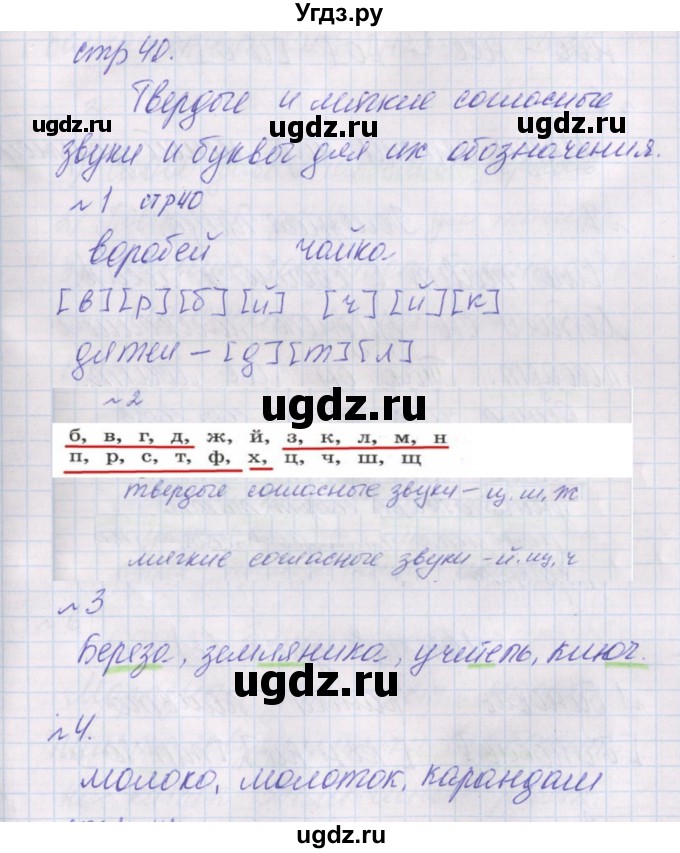 Угдз.ру
стр 40.
Твердые и мягкие согласные
звуки и буквы для их обозначения.
ugdz.ru ugdz.ru ugdz.ru
№1 стр40
воробей чайка
[в][р][б][й] [ч][й][к]
дятел – [д][т][л]
ugdz.ru
№2
б, в, г, д, ж, й, з, к, л, м, н
п, р, с, т, ф, х, ц, ч, ш, щ
твердые согласные звуки – ц, ш, ж
мягкие согласные звуки – й, щ, ч
№3
Береза, земляника, учитель, ключ.
ugdz.ru
№4.
молоко, молоток, карандаш
ugdz.ru ugdz.ru
ugdz.ru